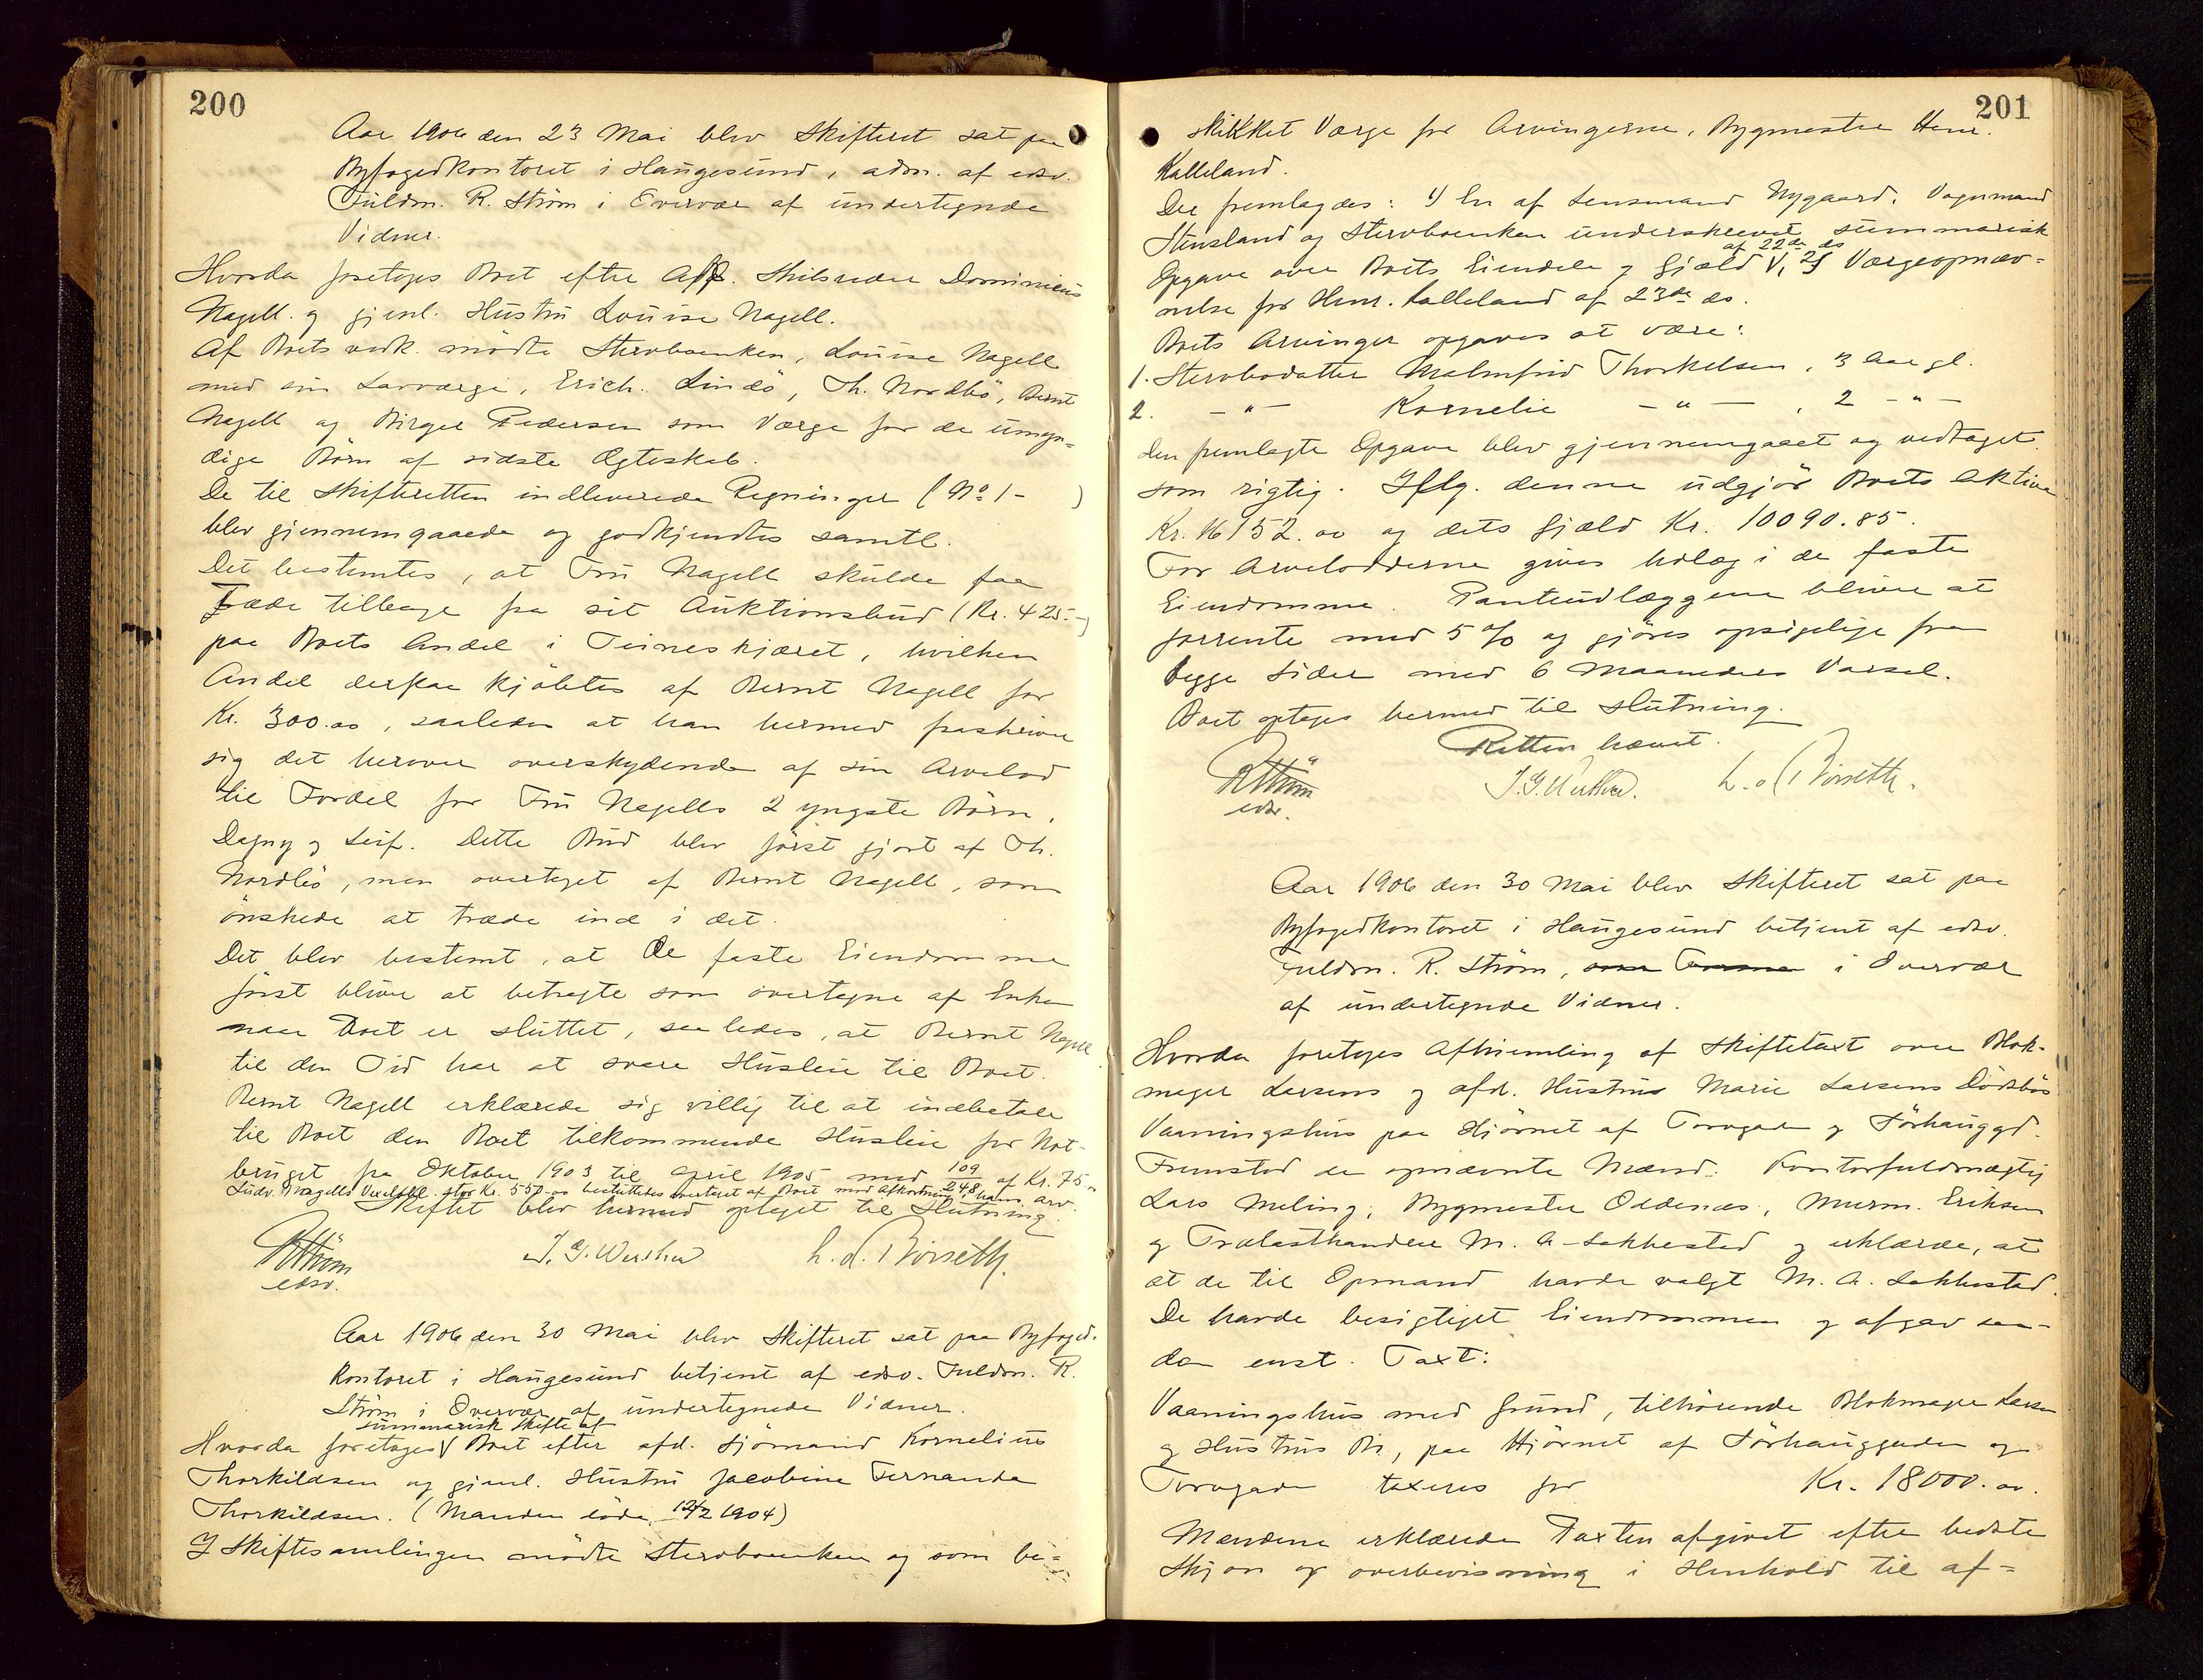 200
Aar 1906 den 23 Mai blev Skifteret sat paa
Byfogedkontoret i Haugesund, adm. af edsv.
Fuldm. R. Strøm i Overvær af undertegnede
Vidner.
Hvorda foretoges Boet efter Afd. Skibsreder Dominicus
Nagell og gjenl. Hustru Louise Nagell.
Af Boets vedk. mødte Stervboenken, Louise Nagell
med sin Lavværge, Erich Lindø, Th. Nordbø, Bernt
Nagell og Birger Pedersen som Værge for de umyn-
dige Børn af sidste Ægteskab.
De til Skifteretten indleverede Regninger (No 1- )
blev gjennemgaaede og godkjendtes samtl.
Det bestemtes, at Fru Nagell skulde faa
træde tilbage fra sit Auktionsbud (Kr. 425.-)
paa Boets Andel i Teineskjæret, hvilken
Andel derpaa kjøbtes af Bernt Nagell for
Kr. 300.00, saaledes at han hermed fraskriver
sig det herover overskydende af sin Arvelod
til Fordel for Fru Nagells 2 yngste Børn,
Dagny og Leif. Dette Bud blev først gjort af Th.
Nordbø, men overtaget af Bernt Nagell, som
ønskede at træde ind i det.
Det blev bestemt, at de faste Eiendomme
først bliver at betragte som overtagne af Enken
naar Boet er sluttet, saaledes, at Bernt Nagell
til den Tid har at svare Husleie til Boet.
Bernt Nagell erklærede sig villig til at indbetale
til Boet den Boet tilkommende Husleie for Not-
bruget fra Oktober 1903 til April 1905 med 109/248 af Kr. 75.00
Ludv. Nagells Vexelobl. stor Kr. 550.00 besluttedes overtaget af Boet mod Afkortning i hans Arv.
Skiftet blev hermed optaget til Slutning
RStrøm
edsv.
J. G. Wershed
L. d. Børseth.
Aar 1906 den 30 Mai blev Skifteret sat paa Byfoged-
kontoret i Haugesund betjent af edsv. Fuldm. R.
Strøm i Overvær af undertegnede Vidner.
summarisk Skifte af
Hvorda foretoges V Boet efter afd. Sjømand Kornelius
Thorkildsen og gjenl. Hustru Jacobine Fernanda
Thorkildsen. (Manden døde 12/2 1904)
I Skiftesamlingen mødte Stervboenken og som be-
201
skikket Værge for Arvingerne, Bygmester Henr.
Kalleland.
Der fremlagdes: 1) En af Lensmand Nygaard, Vognmand
Stensland og Stervboenken underskrevet summarisk
af 22de ds
Opgave over Boets Eiendele og Gjæld V, 2) Værgeopnæv-
nelse for Henr. Kalleland af 23de ds.
Boets Arvinger opgaves at være:
1. Stervbodatter Malmfrid Thorkelsen, 3 Aar gl.
2. - " - Kornelie - " - , 2 - " -
Den fremlagte Opgave blev gjennemgaaet og vedtaget
som rigtig. Iflg. denne udgjør Boets Aktiva
Kr. 16152.00 og dets Gjæld Kr. 10090.85.
For Arvelodderne gives Udlæg i de faste
Eiendomme. Panteudlæggene bliver at
forrente med 5 % og gjøres opsigelige fra
begge Sider med 6 Maaneders Varsel.
Boet optages hermed til Slutning.
Retten hævet.
RStrøm
edsv.
J. G. Wershed.
L. d. Børseth.
Aar 1906 den 30 Mai blev Skifteret sat paa
Byfogedkontoret i Haugesund betjent af edsv.
Fuldm. R. Strøm, i Overvær
af undertegnede Vidner.
Hvorda foretoges Afhjemling af Skiftetaxt over Blok-
mager Larsens og afd. Hustrus Marie Larsens Dødsbos
Vaaningshus paa Hjørnet af Torvgaden og Sørhauggd.
Fremstod de opnævnte Mænd: Kontorfuldmægtig
Lars Meling, Bygmester Oddenæs, Murm. Eriksen
og Trælasthandler M. A. Lokkestad og erklærede, at
at de til Opmand havde valgt M. A. Lokkestad.
De havde besigtiget Eiendommen og afgav saa-
dan enst. Taxt:
Vaaningshus med Grund, tilhørende Blokmager Larsen
og Hustrus Bo, paa Hjørnet af Sørhauggaden og
Torvgaden taxeres for Kr. 18000.00.
Mændene erklærede Taxten afgivet efter bedste
Skjøn og overbevisning i Henhold til af-